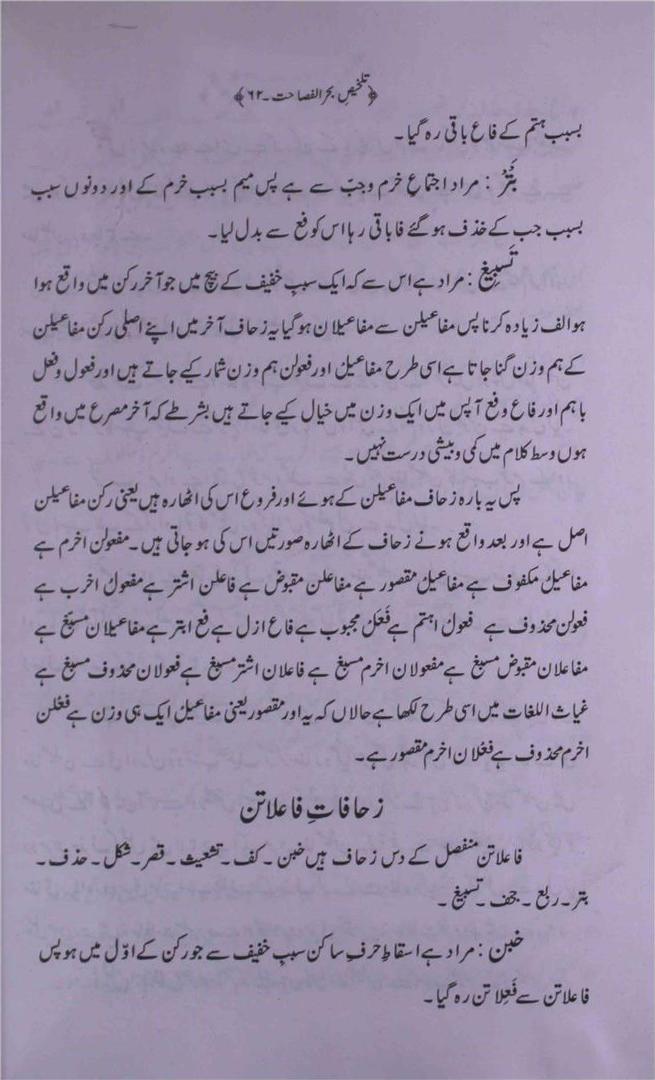 ﴿تلخیص بحر الفصاحت۔۶۲﴾
بسبب ہتم کے فاع باقی رہ گیا۔
بَتَر: مراد اجتماعِ خرم وجبّ سے ہے پس میم بسبب خرم کے اور دونوں سبب
بسبب جب کے خذف ہو گئے فا باقی رہا اس کو فع سے بدل لیا۔
تَسبِیغ: مراد ہے اس سے کہ ایک سببِ خفیف کے بیچ میں جو آخر رکن میں واقع ہوا
ہو الف زیادہ کرنا پس مفاعیلن سے مفاعیلان ہو گیا یہ زحاف آخر میں اپنے اصلی رکن مفاعیلن
کے ہم وزن گنا جاتا ہے اسی طرح مفاعیل اور فعولن ہم وزن شمار کیے جاتے ہیں اور فعول وفعل
باہم اور فاع وفع آپس میں ایک وزن میں خیال کیے جاتے ہیں بشرطے کہ آخر مصرع میں واقع
ہوں وسط کلام میں کمی و بیشی درست نہیں۔
پس یہ بارہ زحاف مفاعیلن کے ہوئے اور فروع اس کی اٹھارہ ہیں یعنی رکن مفاعیلن
اصل ہے اور بعد واقع ہونے زحاف کے اٹھارہ صورتیں اس کی ہو جاتی ہیں۔ مفعولن اخرم ہے
مفاعیلُ مکفوف ہے مفاعیلْ مقصور ہے مفاعلن مقبوض ہے فاعلن اشتر ہے مفعولُ اخرب ہے
فعولن محذوف ہے فعول اہتم ہے فَعَل مجبوب ہے فاع ازل ہے فع ابتر ہے مفاعیلان مسبّغ ہے
مفاعلان مقبوض مسبغ ہے مفعولان اخرم مسبغ ہے فاعلان اشتر مسبغ ہے فعولان محذوف مسبغ ہے
غیاث اللغات میں اسی طرح لکھا ہے حالاں کہ یہ اور مقصور یعنی مفاعیلْ ایک ہی وزن ہے فعْلن
اخرم محذوف ہے فعْلان اخرم مقصور ہے۔
زحافاتِ فاعلاتن
فاعلاتن منفصل کے دس زحاف ہیں خبن۔ کف۔ تشعیث۔ قصر۔ شکل۔ حذف۔
بتر۔ ربع۔ جحف۔ تسبیغ۔
خبن: مراد ہے اسقاطِ حرفِ ساکن سببِ خفیف سے جو رکن کے اوّل میں ہو پس
فاعلاتن سے فَعِلاتن رہ گیا۔